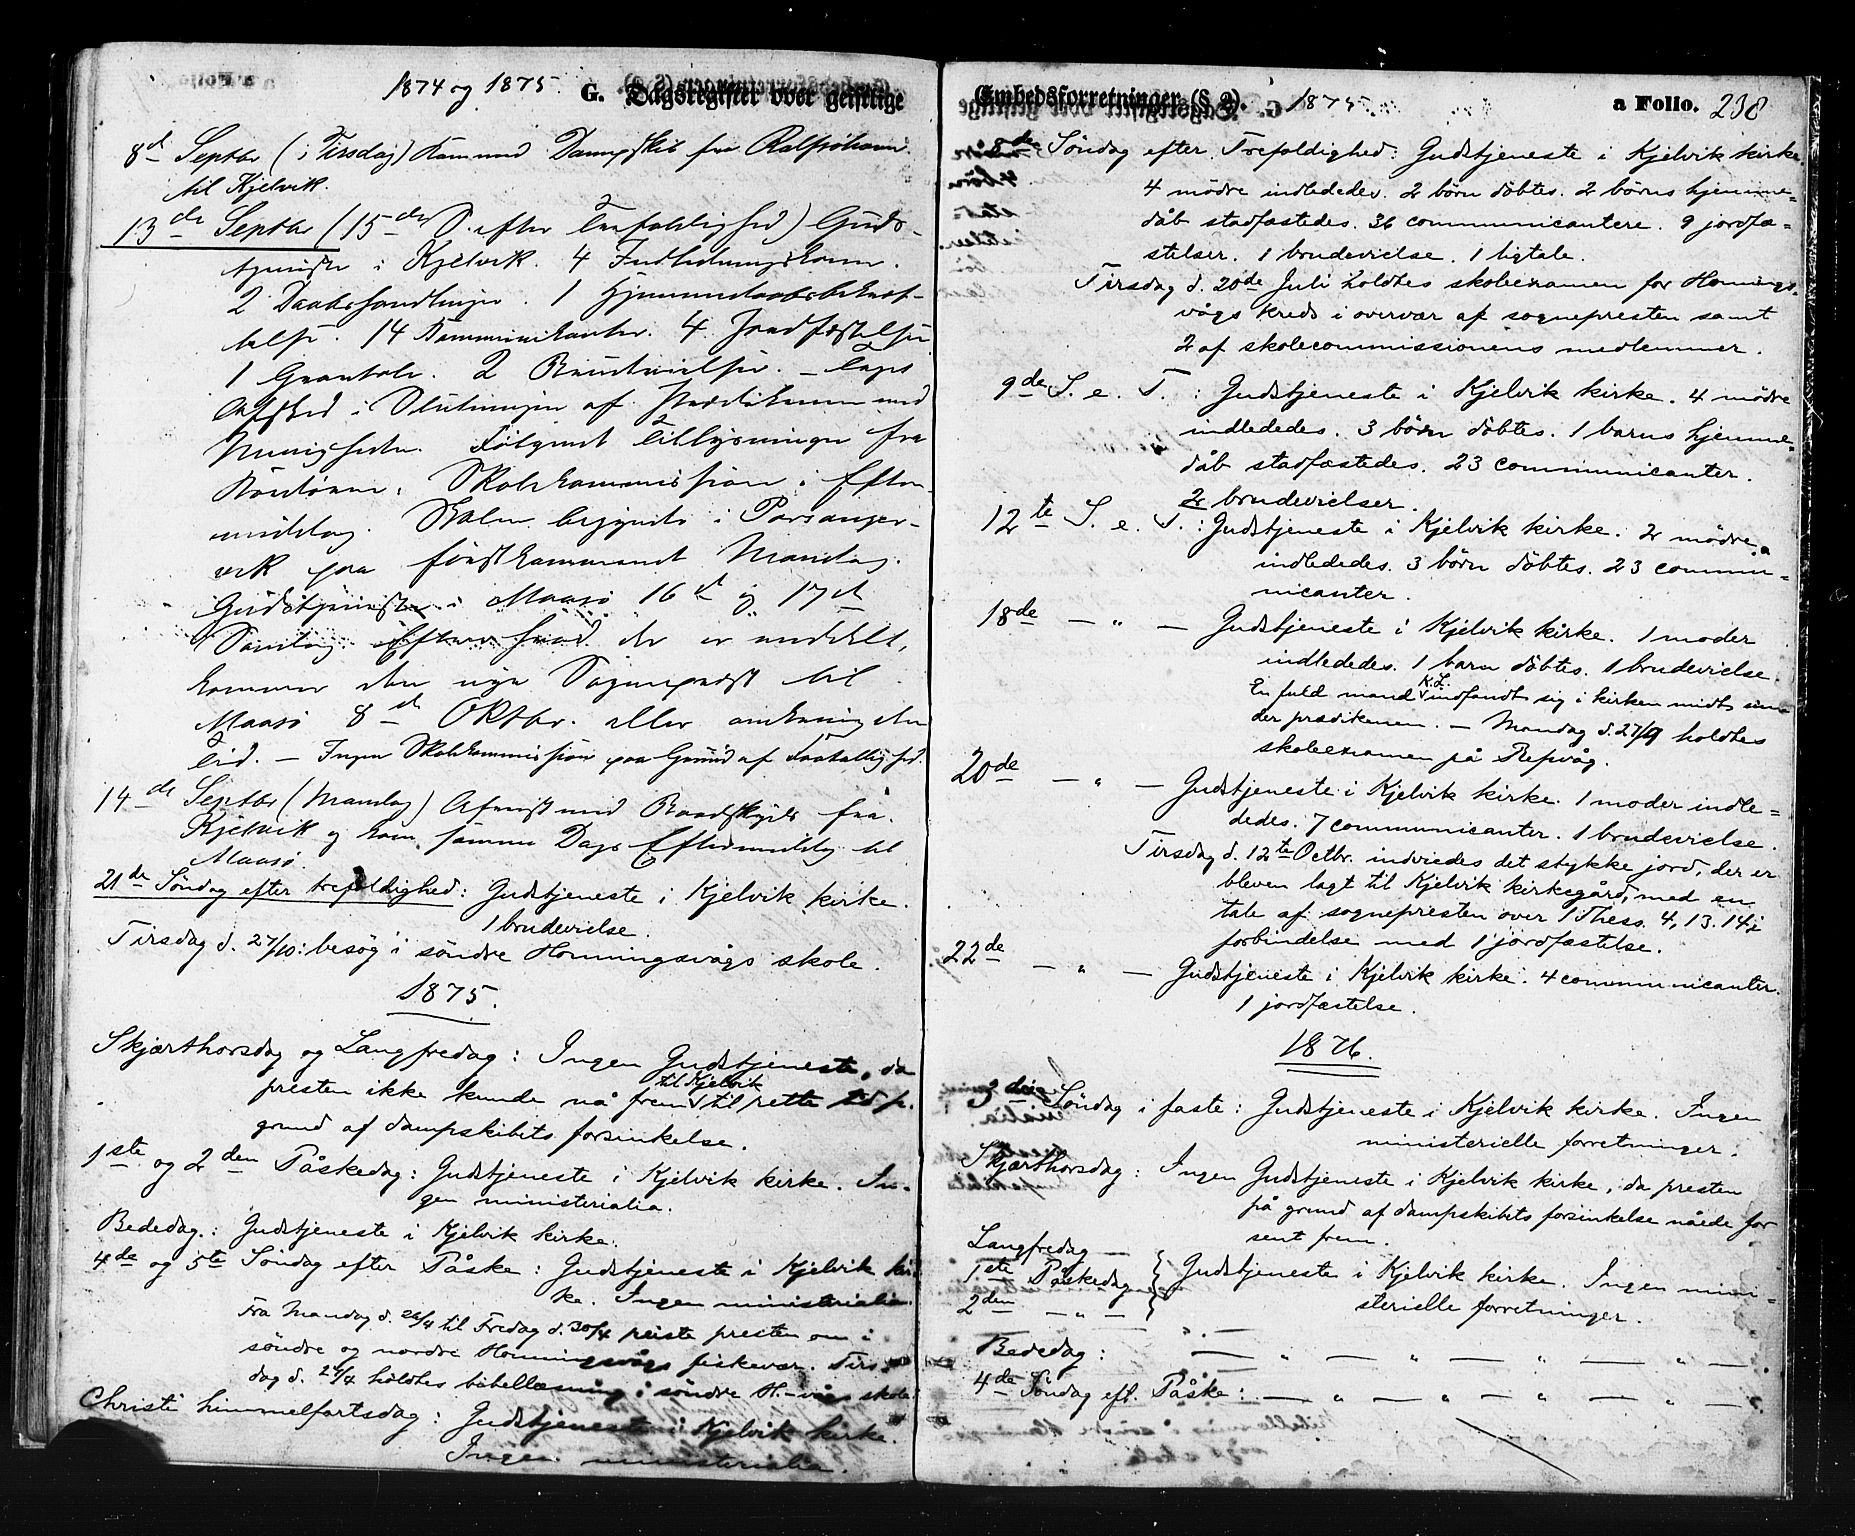 1874 og 1875. G. Dagsregister over geistlige
8d Septbr (i Tirsdag) Kom med Dampskib fra
til Kjelvik.
13de Septbr (15de S. efter Trefoldighed) Guds-
tjeneste i Kjelvik. 4 Indledningskoner.
2 Daabshandlinger. 1 Hjemmedaabsbekræf-
telse. 14 Kommunikanter. 4 Jordfæstelser
1 Gravtale. 2 Brudevielser. – Toges
Afsked i Slutningen af Prædikenen med
Menigheden. Følgende Tillysninger fra
Kordøren: Skolekommission i Efter-
middag. Skolen begynder i Porsanger-
vik paa førstkommende Mandag.
Gudstjeneste i Maasø 16d og 17d
Søndag Efter hvad der er meddelt,
kommer den nye Sogneprest til
Maasø 8d Oktbr. eller omkring den
Tid. – Ingen Skolekommission paa Grund af Faatallighed.
14de Septbr (Mandag) Afreist med Baadskyds fra
Kjelvik og kom samme Dags Eftermiddag til
Maasø.
21de Søndag efter trefoldighed: Gudstjeneste i Kjelvik kirke.
1 brudevielse.
Tirsdag d. 27/10: besøg i söndre Honningsvågs skole.
1875.
Skjærthorsdag og Langfredag: Ingen Gudstjeneste, da
presten ikke kunde nå frem til Kjelvik til rette tid p.
grund af dampskibets forsinkelse.
1ste og 2den Påskedag: Gudstjeneste i Kjelvik kirke. In-
gen ministerialia.
Bededag: Gudstjeneste i Kjelvik kirke.
4de og 5te Söndag efter Påske: Gudstjeneste i Kjelvik kir-
ke. Ingen ministerialia.
Fra Mandag d. 26/4 til Fredag d. 30/4 reiste presten om i
söndre og nordre Honningsvågs fiskevær. Tirs-
dag d. 27/4 holdtes bibellæsning i söndre H.-vågs skole
Christi himmelfartsdag: Gudstjeneste i Kjelvik kirke.
Ingen ministerialia.
Embedsforretninger (§ 2). G. 1875. a Folio. 238
8de Söndag efter Trefoldighed: Gudstjeneste i Kjelvik kirke.
4 mödre indlededes. 2 börn döbtes. 2 börns hjemme-
dåb stadfæstedes. 36 communicantere. 9 jordfæ-
stelser. 1 brudevielse. 1 ligtale.
Tirsdag d. 20de Juli holdtes skoleexamen for Honnings-
vågs kreds i overvær af sognepresten samt
2 af skolecommissionens medlemmer.
9de S. e. T.: Gudstjeneste i Kjelvik kirke. 4 mödre
indlededes. 3 börn döbtes. 1 barns hjemme-
dåb stadfæstedes. 23 communicanter.
2 brudevielser.
12te S. e. T.: Gudstjeneste i Kjelvik kirke. 2 mödre
indlededes. 3 börn döbtes. 23 commu-
nicanter.
18de — " — Gudstjeneste i Kjelvik kirke. 1 moder
indlededes. 1 barn döbtes. 1 brudevielse.
En fuld mand K.L. indfandt sig i kirken midt un-
der prædikenen. – Mandag d. 27/9 holdtes
skoleexamen på Repvåg.
20de — " — Gudstjeneste i Kjelvik kirke. 1 moder indle-
dedes. 7 communicanter. 1 brudevielse.
Tirsdag d. 12te Octbr. indviedes det stykke jord, der er
bleven lagt til Kjelvik kirkegård, med en
tale af sognepresten over 1 Thess. 4, 13. 14 i
forbindelse med 1 jordfæstelse.
22de — " — Gudstjeneste i Kjelvik kirke. 4 communicanter.
1 jordfæstelse.
1876.
3die Söndag i faste: Gudstjeneste i Kjelvik kirke. Ingen
ministerielle forretninger.
Skjærthorsdag: Ingen Gudstjeneste i Kjelvik kirke, da presten
på grund af dampskibets forsinkelse nåede for
sent frem.
Langfredag —
1ste Påskedag } Gudstjeneste i Kjelvik kirke. Ingen mini-
2den — " — sterielle forretninger.
Bededag: — " — " — " — " —
4de Söndag eft. Påske: — " — " — " — " —